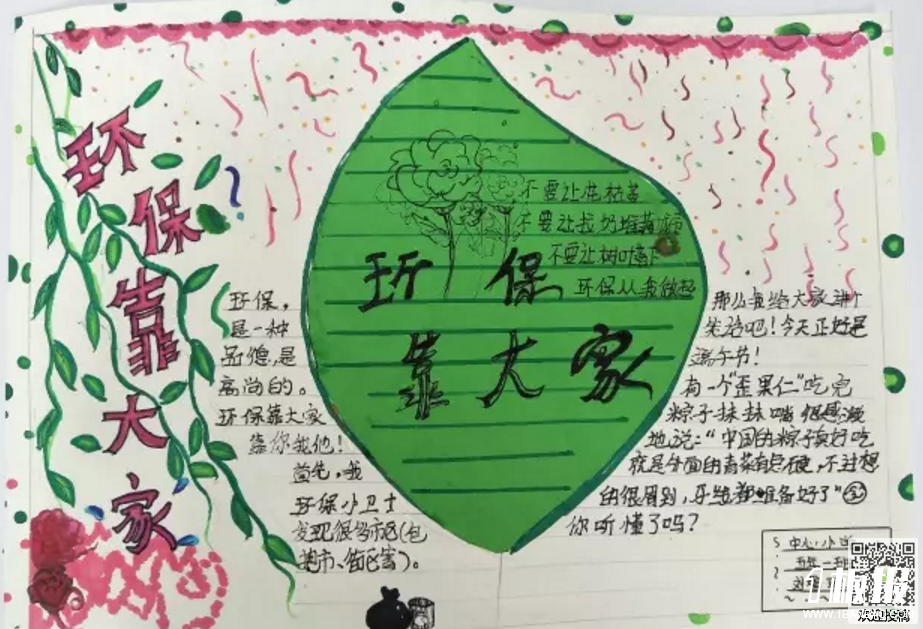 环保靠大家
不要让花枯萎
不要让垃圾堆
不要让树
环保从我做起
环 保
靠 大 家
环保，
是一种
品德，是
高尚的。
环保靠大家
靠你我他！
首先，我
环保小卫士
发现很多市区（包
菜市、街区害）。
那么我给大家讲个
笑话吧！今天正好是
端午节！
有一个“歪果仁”吃完
粽子抹抹嘴很感激
地说：“中国的粽子真好吃
就是外面的青菜有点硬，不过想
的很周到，牙线都准备好了”
你听懂了吗？
中心小学
欢迎投稿